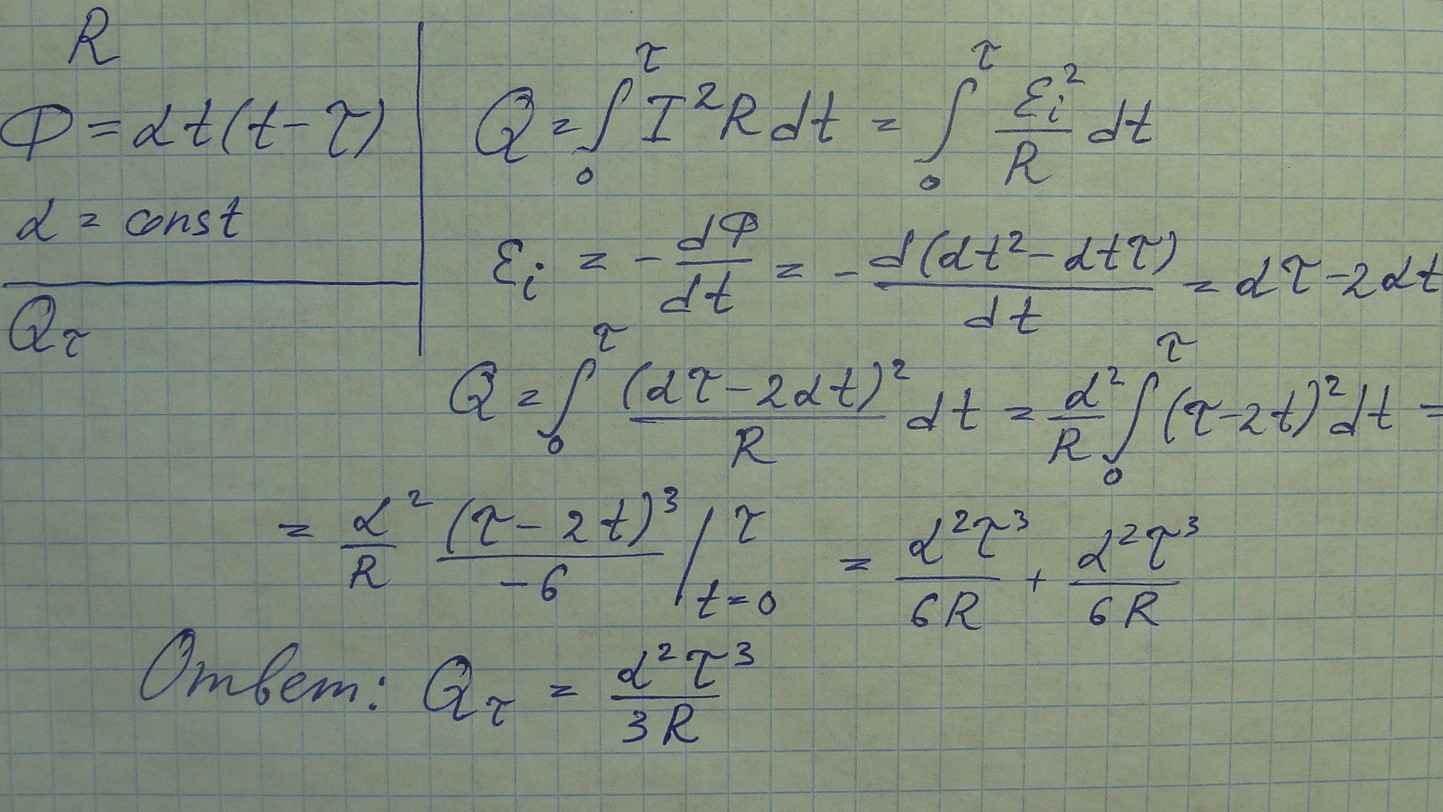 R
Φ = αt(t - τ)
α = const
Q_τ
Q = ∫₀^τ I²R dt = ∫₀^τ ℰᵢ²/R dt
ℰᵢ = - dΦ/dt = - d(αt² - αtτ)/dt = ατ - 2αt
Q = ∫₀^τ (ατ - 2αt)²/R dt = α²/R ∫₀^τ (τ - 2t)² dt =
= α²/R (τ - 2t)³/-6 |_{t=0}^τ = α²τ³/6R + α²τ³/6R
Ответ: Q_τ = α²τ³/3R